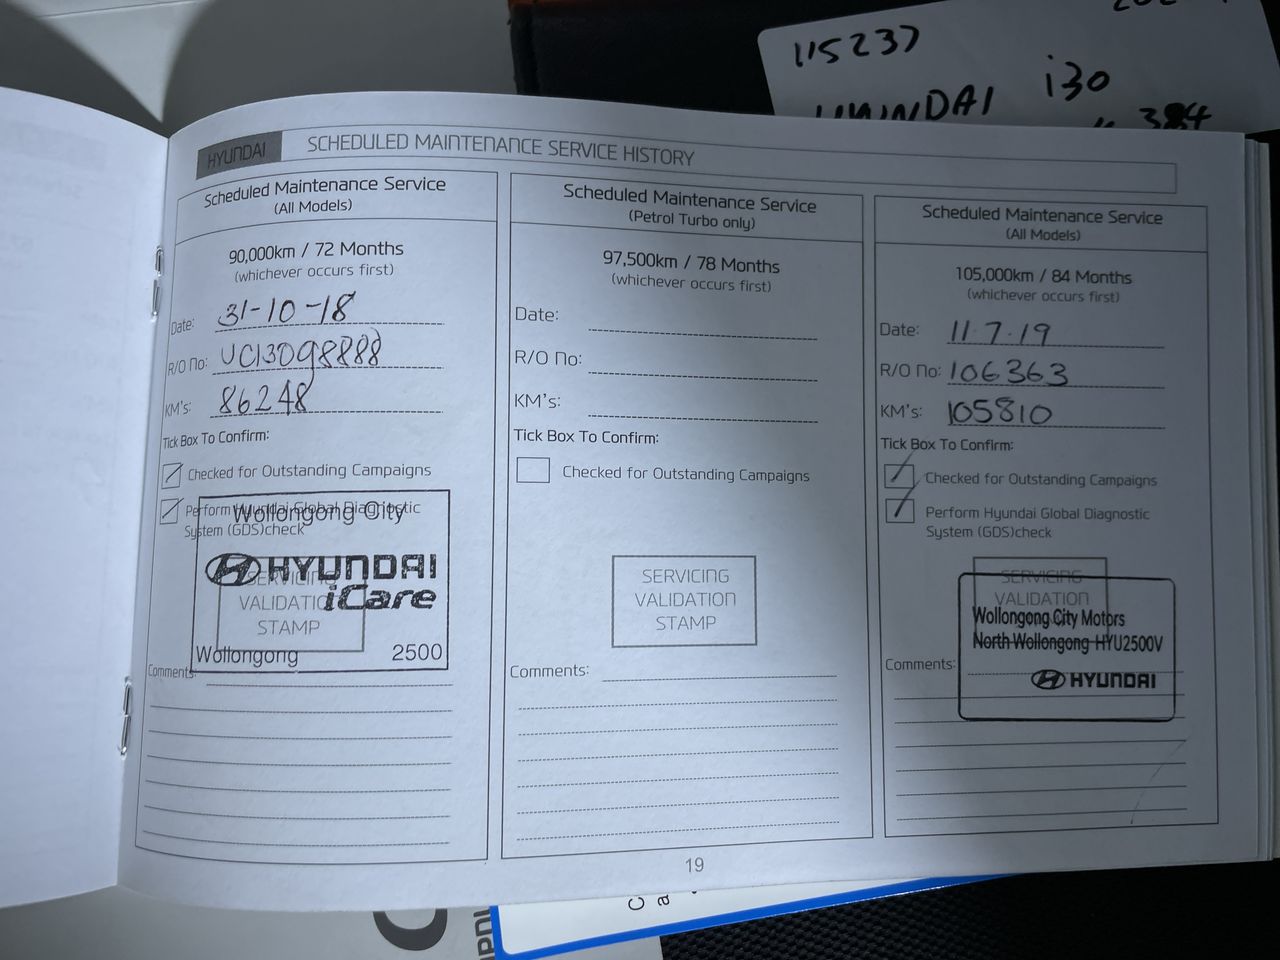 115237
HYUNDAI i30
384
HYUNDAI SCHEDULED MAINTENANCE SERVICE HISTORY
Scheduled Maintenance Service
(All Models)
90,000km / 72 Months
(whichever occurs first)
Date: 31-10-18
R/O No: UC13098888
KM's: 86248
Tick Box To Confirm:
Checked for Outstanding Campaigns
Perform Hyundai Global Diagnostic
System (GDS)check
Wollongong City
HYUNDAI
iCare
SERVICING
VALIDATION
STAMP
Wollongong 2500
Comments:
Scheduled Maintenance Service
(Petrol Turbo only)
97,500km / 78 Months
(whichever occurs first)
Date:
R/O No:
KM's:
Tick Box To Confirm:
Checked for Outstanding Campaigns
SERVICING
VALIDATION
STAMP
Comments:
Scheduled Maintenance Service
(All Models)
105,000km / 84 Months
(whichever occurs first)
Date: 11·7·19
R/O No: 106363
KM's: 105810
Tick Box To Confirm:
Checked for Outstanding Campaigns
Perform Hyundai Global Diagnostic
System (GDS)check
SERVICING
VALIDATION
STAMP
Wollongong City Motors
North Wollongong HYU2500V
HYUNDAI
Comments:
19